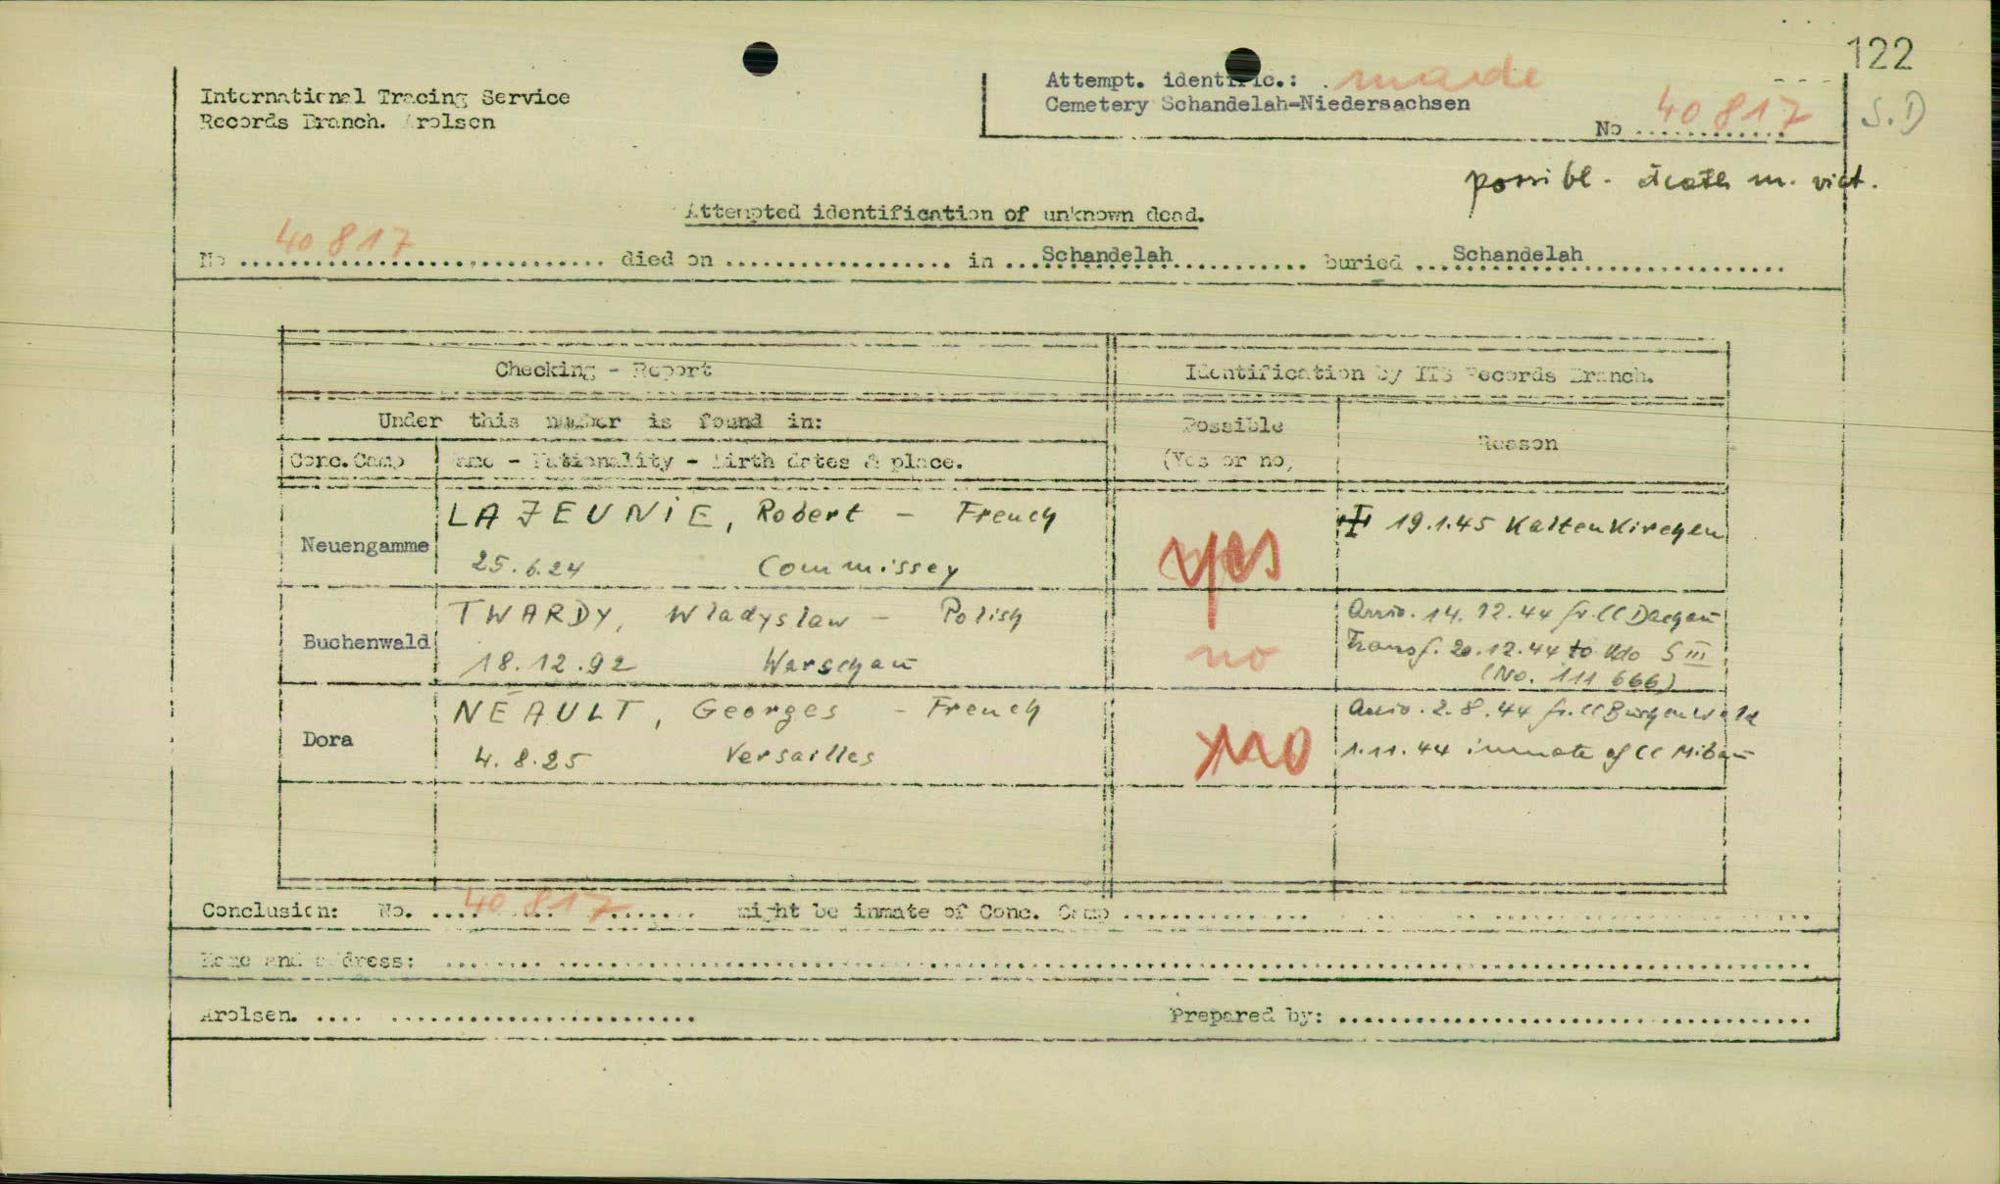 122
International Tracing Service
Records Branch. Arolsen
Attempt. identific.: made
Cemetery Schandelah-Niedersachsen
No 40 817
S.D
possibl. death m. vict.
Attempted identification of unknown dead.
No 40 817 died on ........ in Schandelah buried Schandelah
Checking - Report
Identification by ITS Records Branch.
Under this number is found in:
Possible
(Yes or no)
Reason
Conc. Camp
Name - Nationality - Birth dates & place.
Neuengamme
LAJEUNIE, Robert - French
25.6.24 Commissey
yes
19.1.45 Kaltenkirchen
Buchenwald
TWARDY, Wladyslaw - Polish
18.12.92 Warschau
no
Arriv. 14.12.44 fr. CC Dachau
Transf. 20.12.44 to Kdo S III
(No. 111 666)
Dora
NÉAULT, Georges - French
4.8.25 Versailles
no
Arriv. 2.8.44 fr. CC Buchenwald
1.11.44 inmate of CC Mibau
Conclusion: No. 40 817 might be inmate of Conc. Camp ........
Name and address: ........
Arolsen. ........
Prepared by: ........